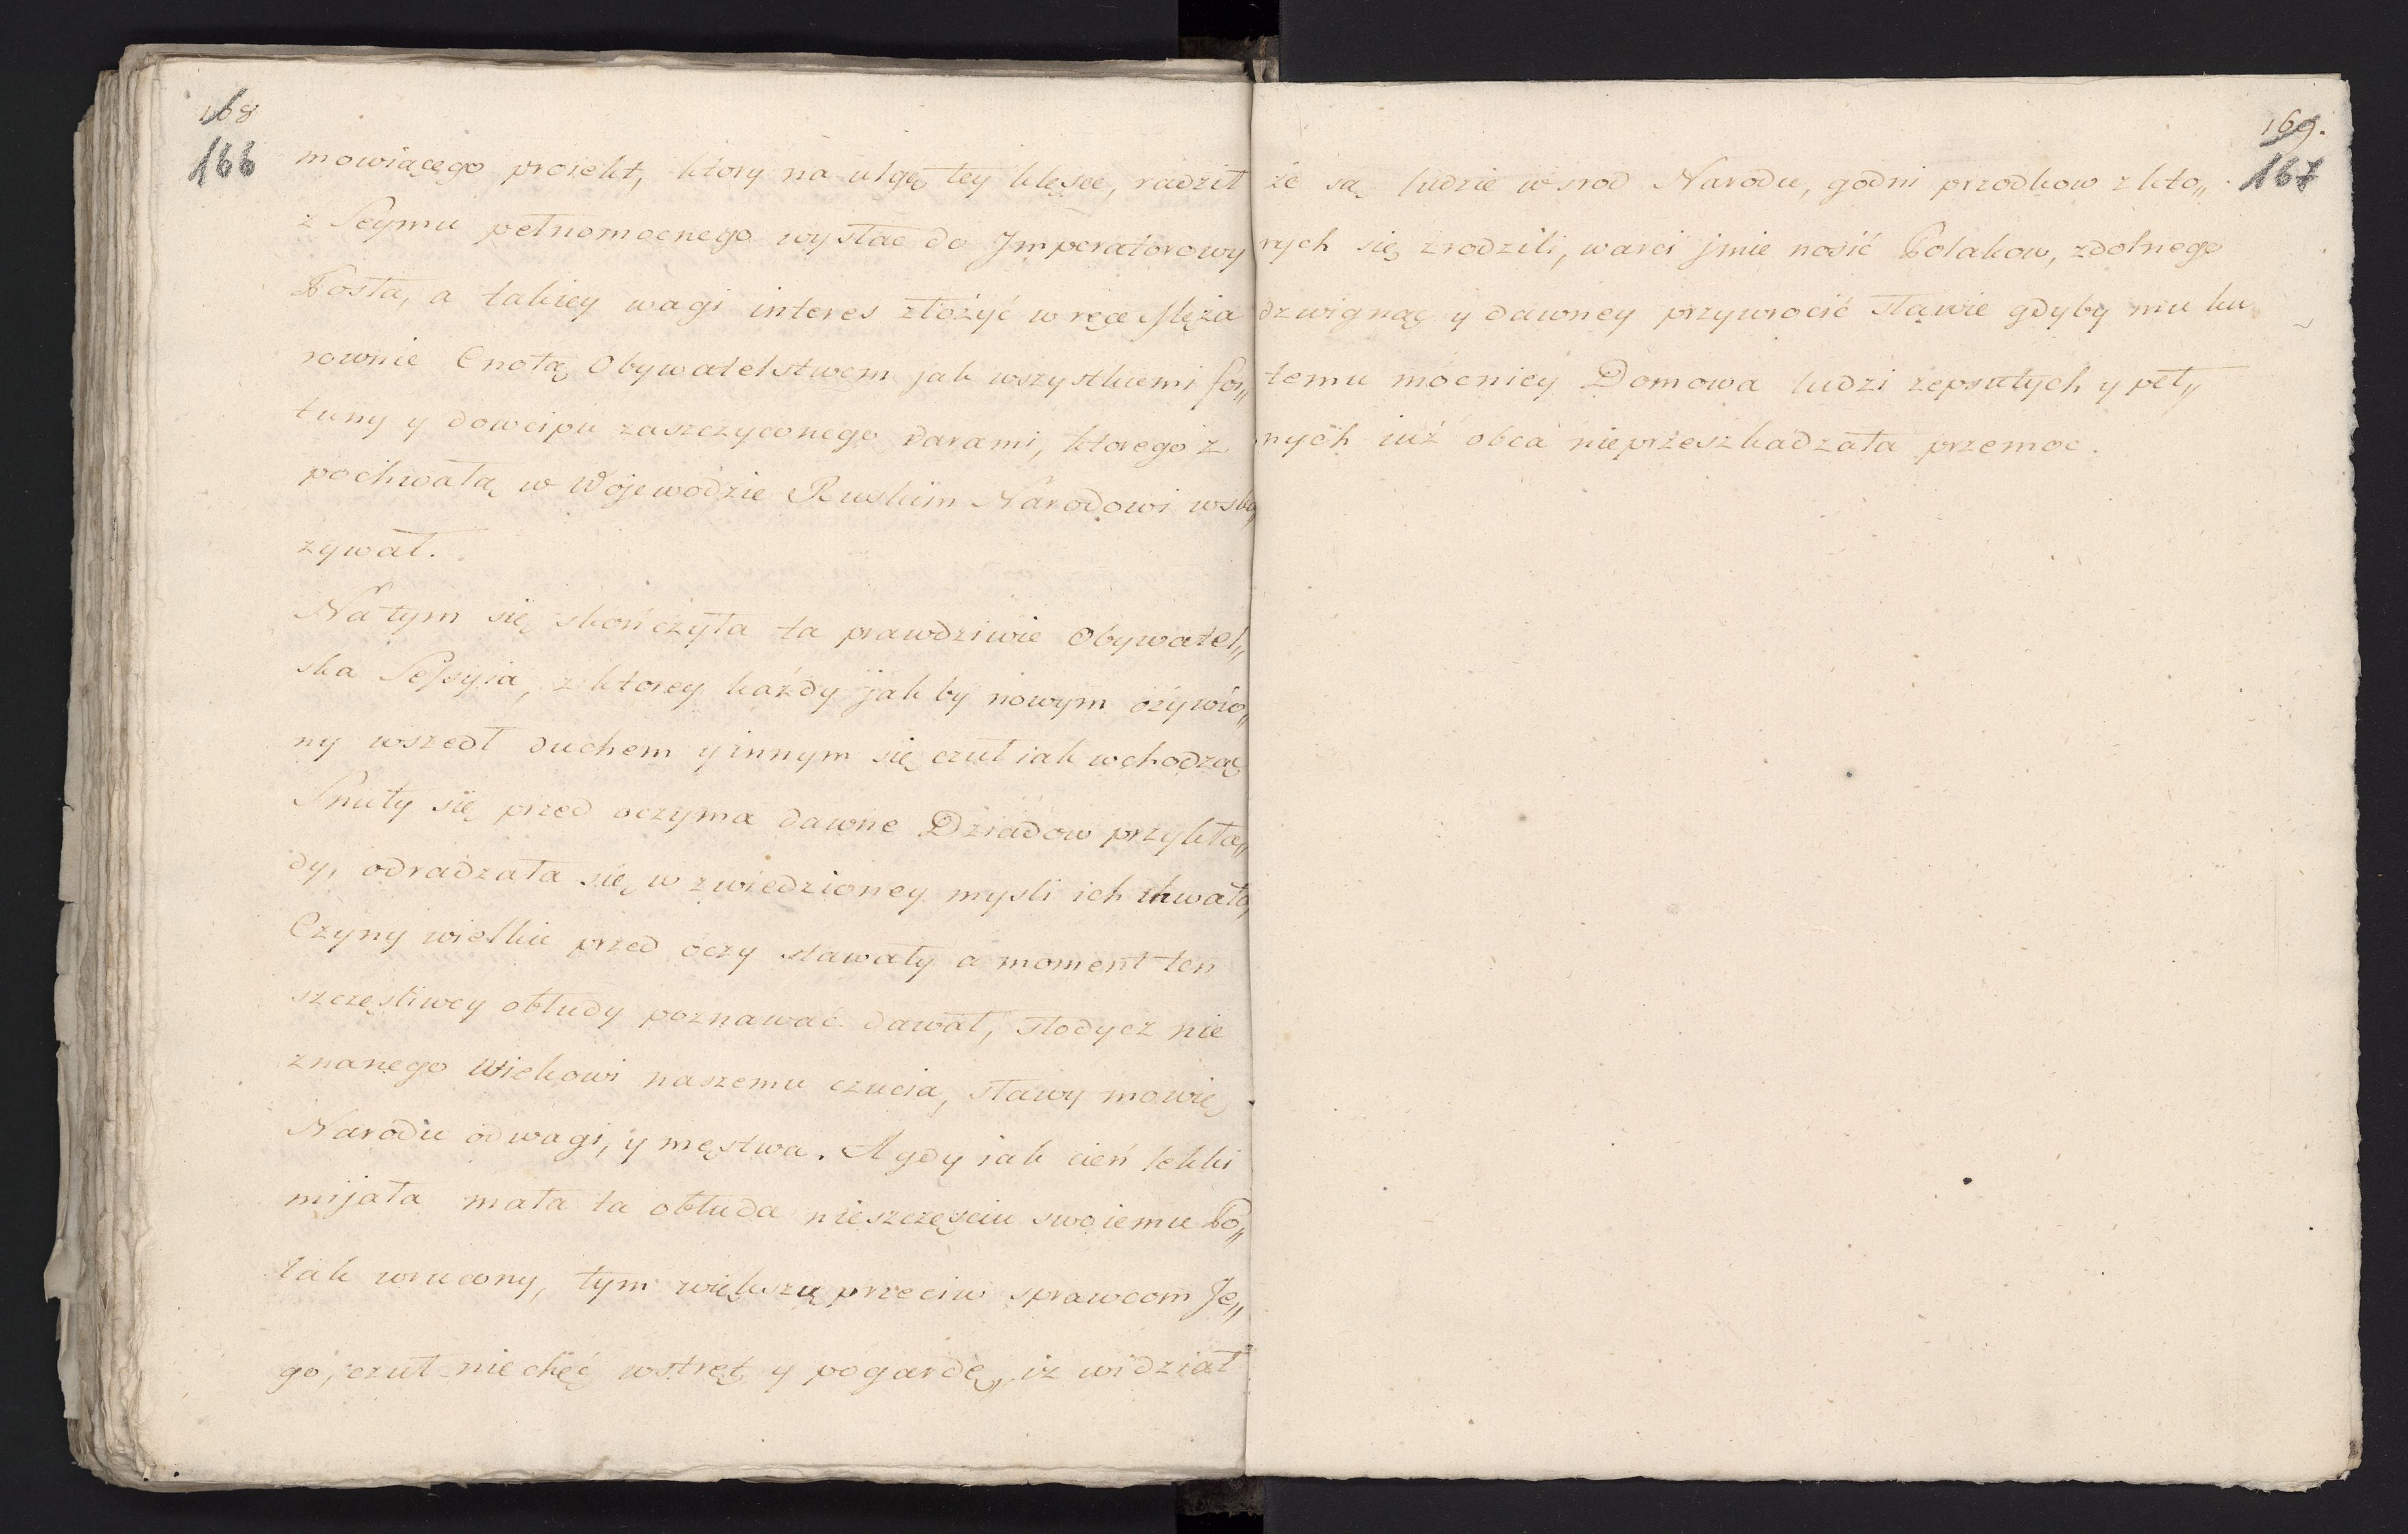 168
166
mowiącego proiekt, ktory na ulgę tey klęsce, radził
z Seymu pełnomocnego wysłac do Jmperatorowy
Posła, a takiey wagi interes złożyć w ręce Męża
rownie Cnotą Obywatelstwem jak wszystkiemi for„
tuny y dowcipu zaszczyconego darami, ktorego z
pochwałą w Wojewodzie Ruskim Narodowi wska„
zywał.
Na tym się skończyła ta prawdziwie Obywatel„
ska Sessyia, z ktorey każdy jakby nowym ożywio„
ny wszedł duchem y innym się czuł iak wchodząc
Snuły się przed oczyma dawne Dziadow przykła„
dy, odradzała się w zwiedzioney mysli ich chwała,
Czyny wielkie przed oczy stawały a moment ten
szczęsliwey obłudy poznawac dawał, słodycz nie
znanego Wiekowi naszemu czucia, sławy mowię
Narodu odwagi, y męstwa. A gdy iak cień lekki
mijała mała ta obłuda nieszczęsciu swoiemu Po„
lak wrucony, tym większą przeciw sprawcom Je„
go, czuł niechęć wstręt y pogardę, iż widział
169.
167
że są ludzie wsrod Narodu, godni przodkow z kto„
rych się zrodzili, warci jmie nosić Polakow, zdolnego
dzwignąc y dawney przywrocić sławie gdyby mu ku
temu mocniey Domowa ludzi zepsutych y peł„
nych iuż obca nieprzeszkadzała przemoc.